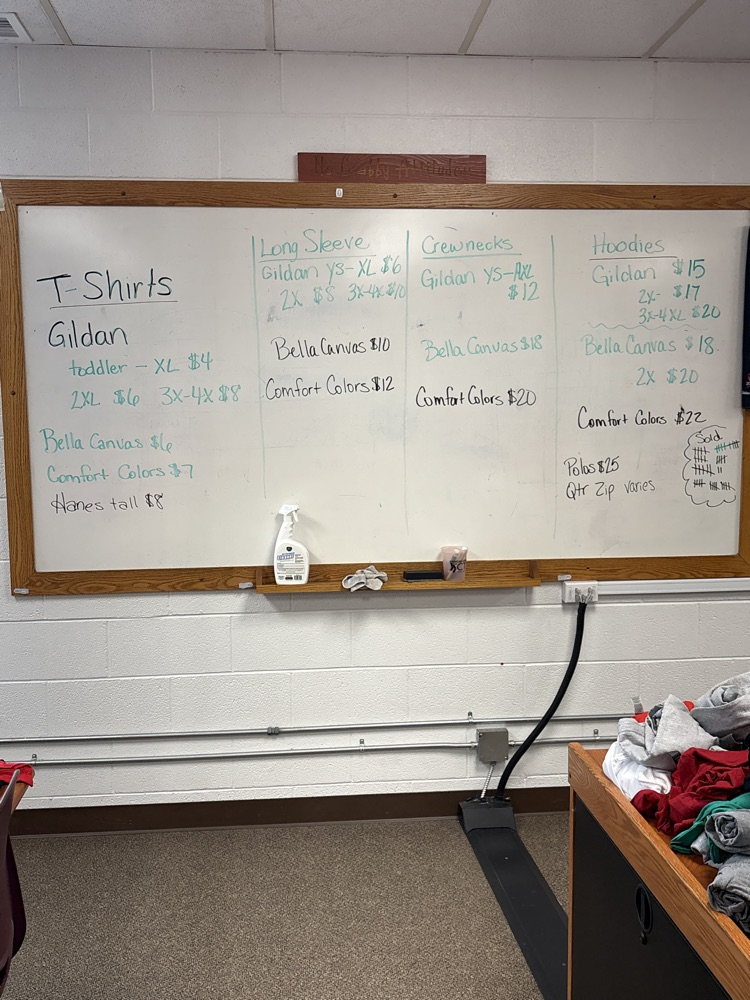 T-Shirts
Gildan
toddler - XL $4
2XL $6 3X-4X $8
Bella Canvas $6
Comfort Colors $7
Hanes tall $8
Long Sleeve
Gildan YS-XL $6
2X $8 3X-4X $10
Bella Canvas $10
Comfort Colors $12
Crewnecks
Gildan YS-AXL
$12
Bella Canvas $18
Comfort Colors $20
Hoodies
Gildan $15
2X- $17
3X-4XL $20
Bella Canvas $18
2X $20
Comfort Colors $22
Polos $25
Qtr Zip varies
Sold